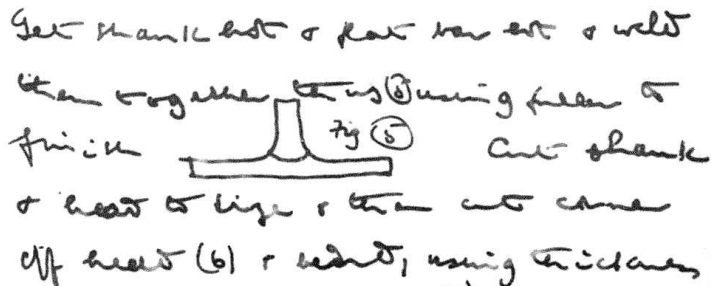 Get shank hot & flat bar hot & weld
them together thus ⑤ using fuller to
finish Fig ⑤ Cut shank
& head to size & then cut corner
off head (6) & bend, using thickness